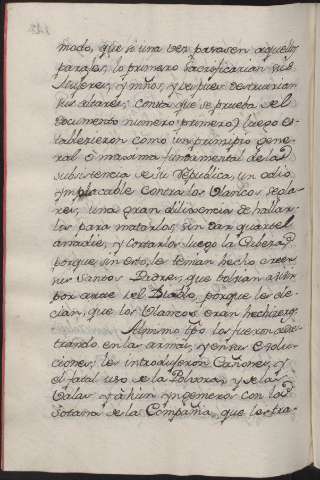 modo, que si una vez pasasen aquellos
parajes, lo primero sacrificarian sus
Mugeres, y niños, y despues destruirian
sus altares, consta que se prueba del
documento numero primero) luego es-
tablecieron como un principio gene-
ral ó maxima fundamental de la
subsistencia de su Republica, un odio
implacable contra los blancos segla-
res, una gran diligencia de hallar-
los para matarlos, sin dar quartel
a nadie, y cortarlos luego la Cabeza
porque sin esto, les tenian hecho creer
sus Santos Padres, que bolbian a vivir
por arte del Diablo, porque les de-
cian, que los blancos eran hechizeros.
Al mismo tpo. los fueron adies-
trando en las armas, y en sus Evolu-
ciones, les introdujeron Cañones, y
el fatal uso de la Polvora, y de las
Balas y aun Yngenieros con la
Sotana de la Compañia, que les tra-